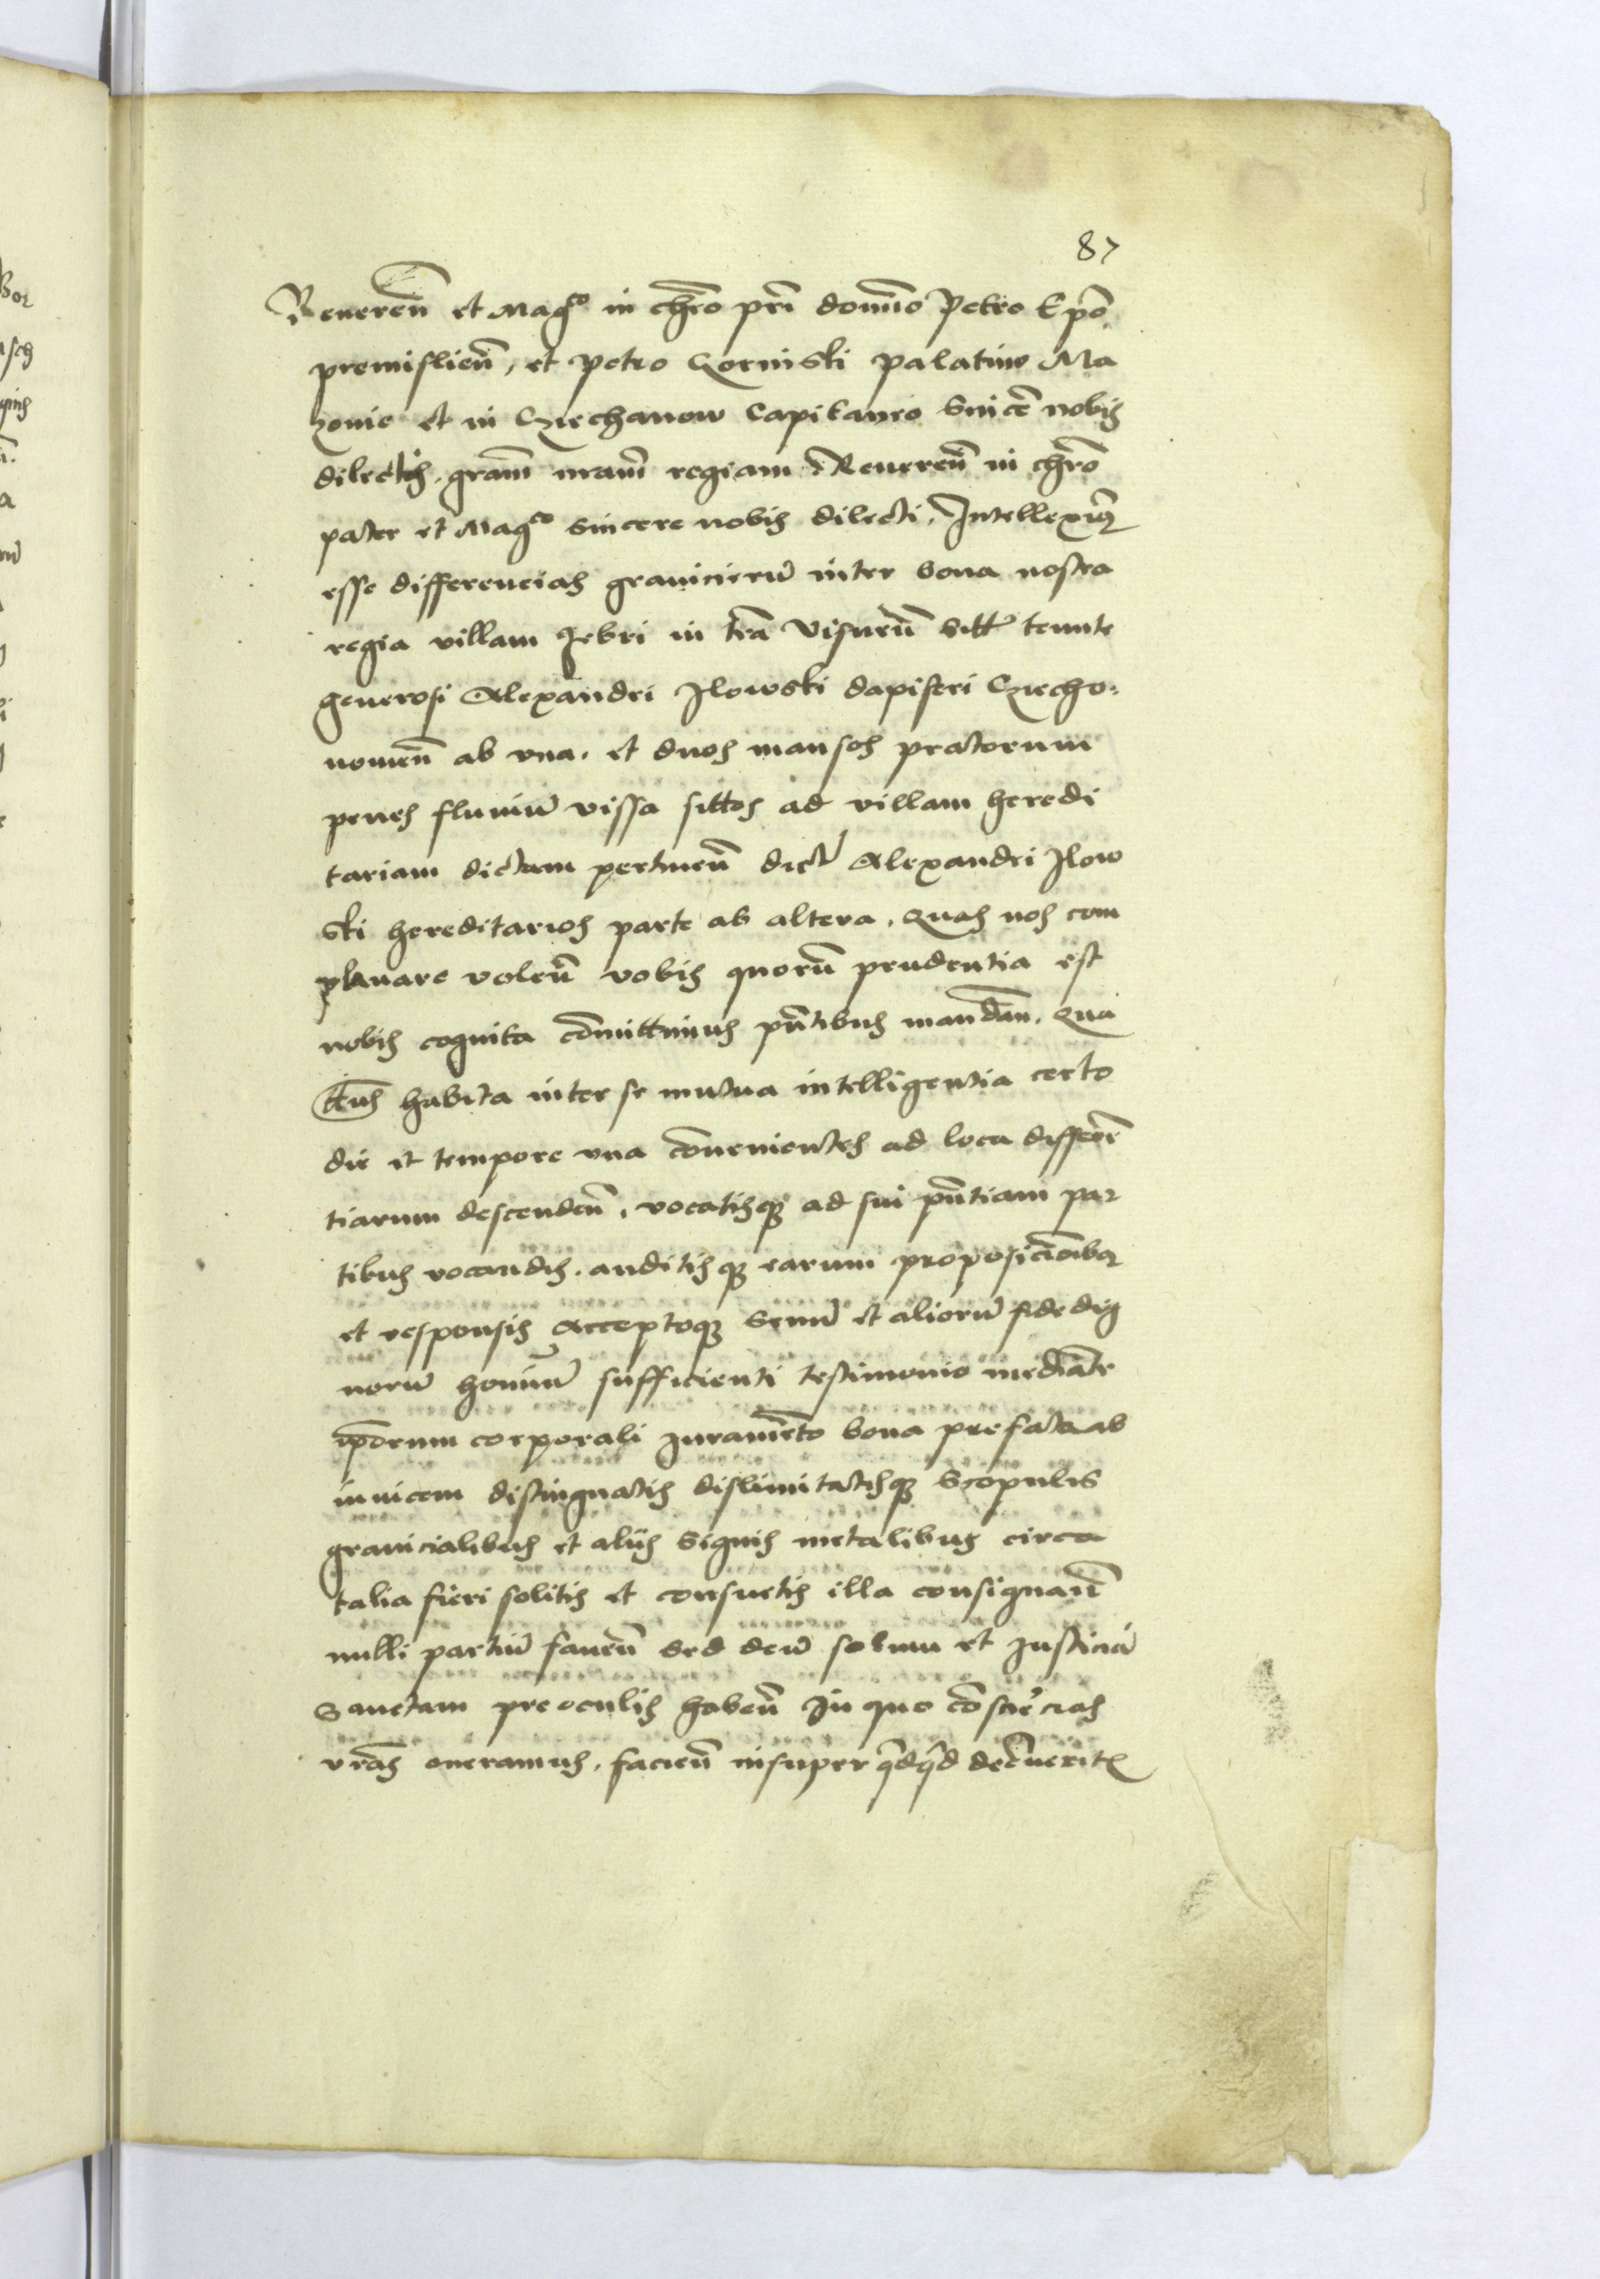 87
Reveren̄ et Magco in chr̄o pr̄i domīo Petro Ep̄o
premislien̄, et Petro Gorinski palatino Ma
zovie et in Cziechanow Capitaneo Sincē nobis
dilectis. grām nrām regiam Reveren̄ in chr̄o
pater et Magco sincere nobis dilecti. Intelleximꝰ
esse differencias granicierū inter bona nostra
regia villam in tr̄a Visneñ sitt tenute
generosi Alexandri Ilowski dapiferi Czecho-
nomen̄ ab vna. et duos mansos pratorum
penes fluuiū vissa sittos ad villam heredi
tariam dictam pertinen̄ dicti Alexandri Ilow
ski hereditarios parte ab altera. Quas nos com
planare volen̄ vobis quorū prudentia est
nobis cognita cōmittimus pn̄tibus mandān. Qua
tt̄us habita inter se mutua intelligentia certo
die et tempore vna cōuenientes ad loca differēn
tiarum descenden̄. vocatisqꝫ ad sui pn̄tiam par
tibus vocandis. auditisqꝫ earum proposicōnibꝰ
et responsis acceptoqꝫ Senū et aliorū fidedig
norū hominū sufficienti testimonio mediāte
ip̄orum corporali Iuramēto bona prefata ab
inuicem distinguatis dislimitatisqꝫ Scopulis
granicialibus et aliis Signis metalibus circa
talia fieri solitis et consuetis illa consignan̄
nulli partiū faven̄ Sed deū solum et Iusticiā
Sanctam pre oculis haben̄ In quo cōsciēcias
vrās oneramus. facien̄ insuper qd̄qd̄ decreueritꝭ